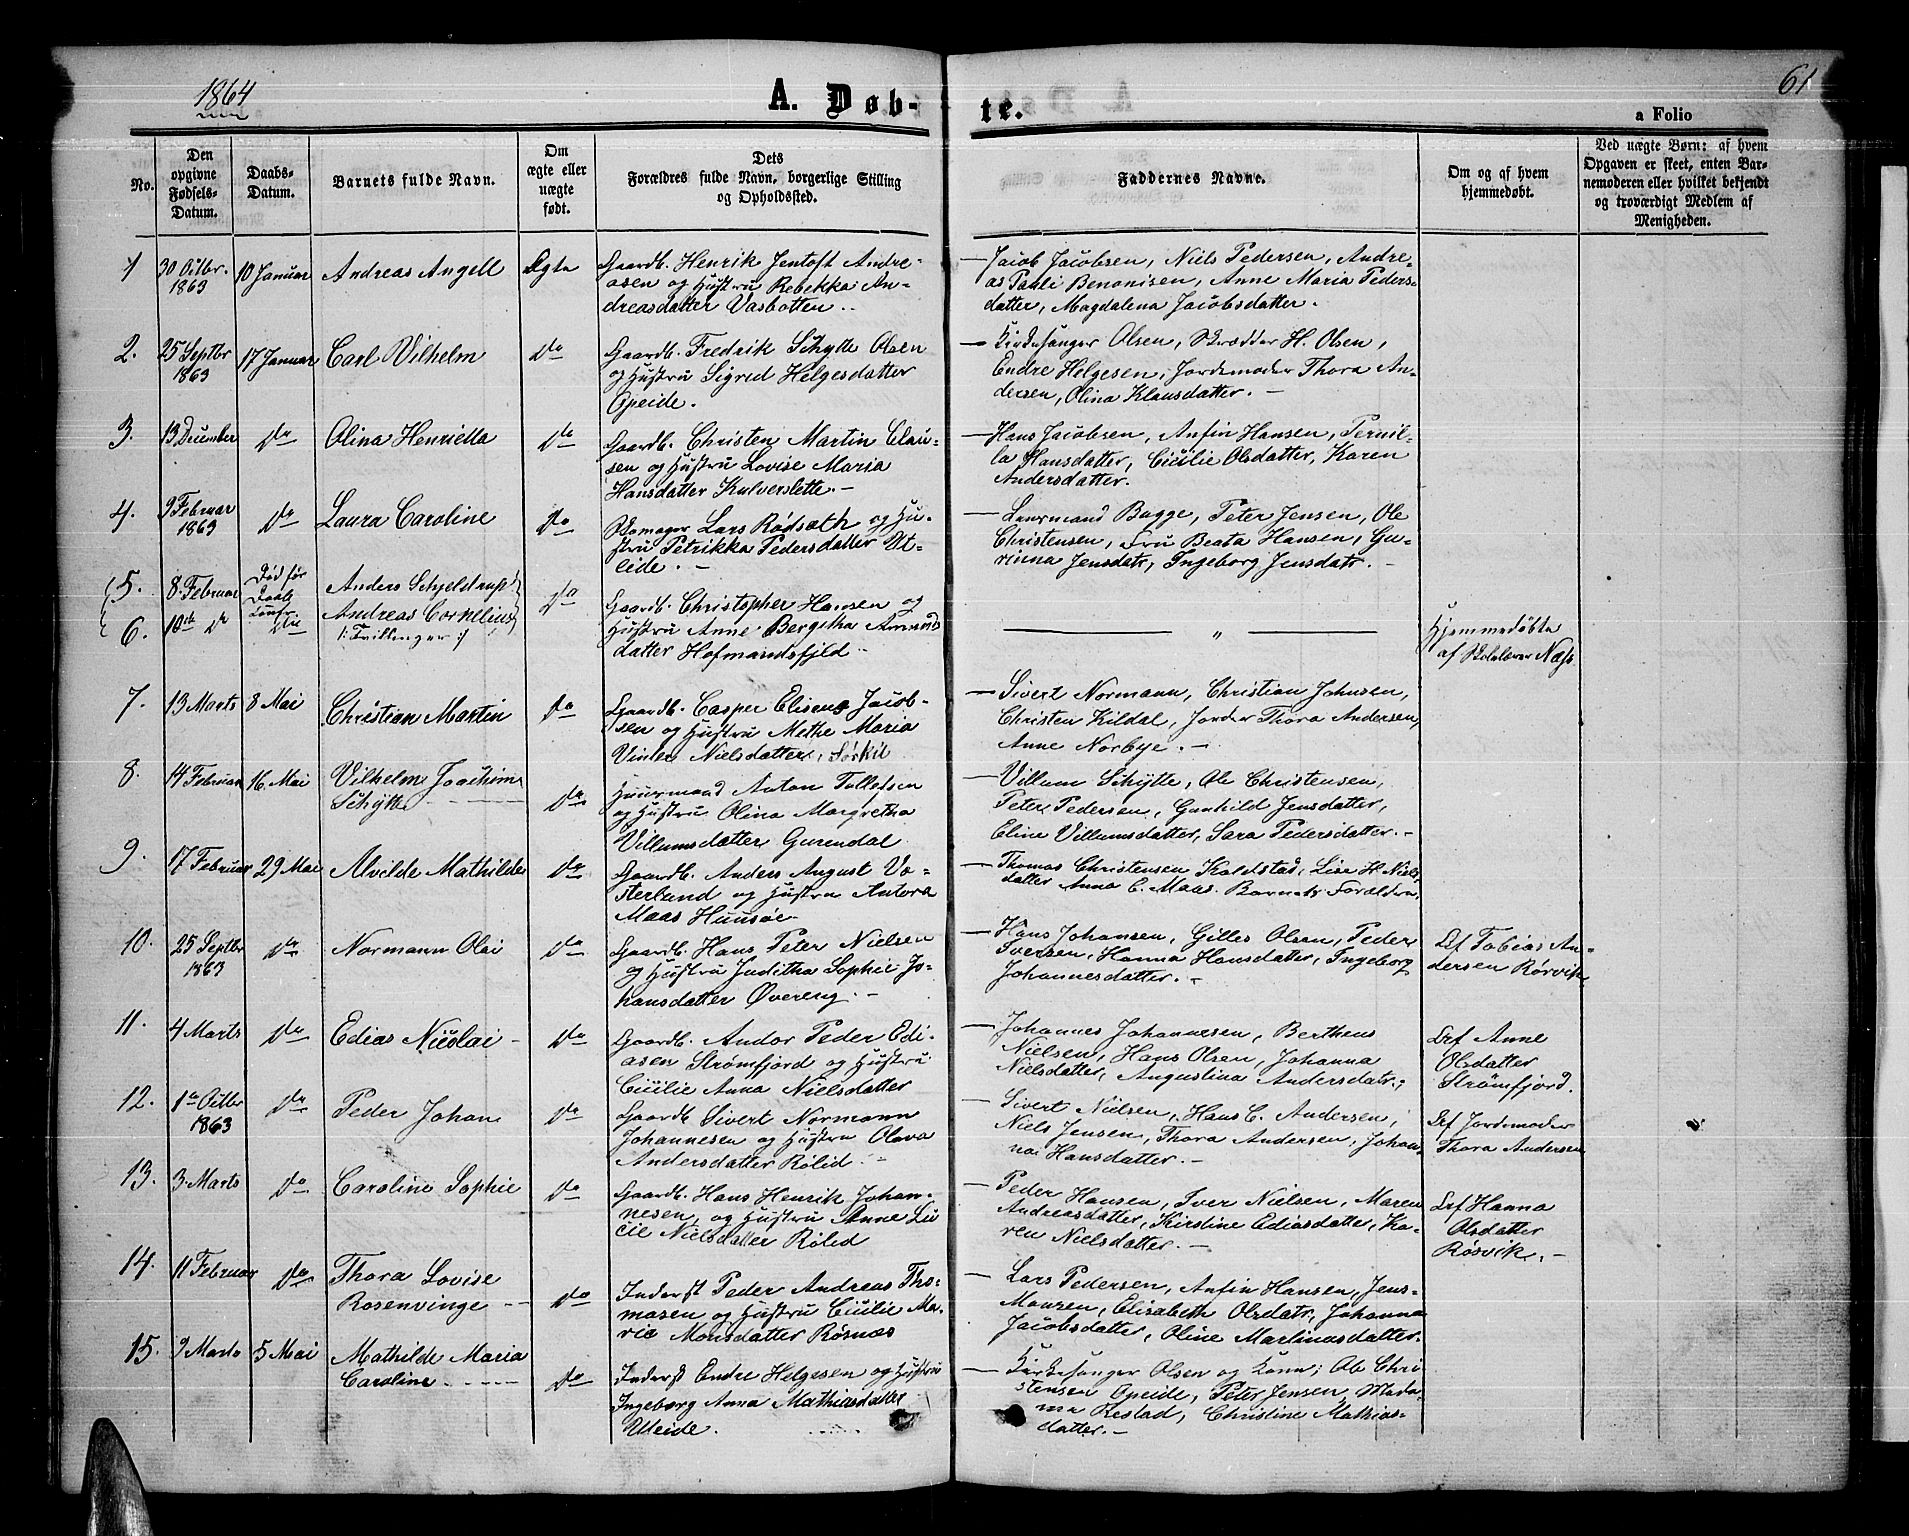 1864
A. Døb-
te.
61
a Folio
No.
Den
opgivne
Fødsels-
Datum.
Daabs-
Datum.
Barnets fulde Navn.
Om
ægte eller
uægte
født.
Dets
Forældres fulde Navn, borgerlige Stilling
og Opholdssted.
Faddernes Navne.
Om og af hvem
hjemmedøbt.
Ved uægte Børn: af hvem
Opgaven er skeet, enten Bar-
nemoderen eller hvilket bekjendt
og troværdigt Medlem af
Menigheden.
1
30 Octbr.
1863
10 Januar
Andreas Angell
Ægte
Gaardb. Henrik Jentoft Andre-
asen og Hustru Rebekka An-
dreasdatter Vasbotten.
Jacob Jacobsen, Niels Pedersen, Andre-
as Pauli Benonisen, Anne Maria Peders-
datter, Magdalena Jacobsdatter.
2.
25 Septbr
1863
17 Januar
Carl Vilhelm
Do
Gaardb. Fredrik Schytte Olsen
og Hustru Sigred Helgesdatter
Opeide.
Kirkesanger Olsen, Skrædder H. Olsen,
Endre Helgesen, Jordemoder Thora An-
dersen, Olina Klausdatter.
3.
13 December
Do
Olina Henriella
Do
Gaardb. Christen Martin Clau-
sen og Hustru Lovise Maria
Hansdatter Kulverslette.
Hans Jacobsen, Anfin Hansen, Pernil-
la Hansdatter, Cicilie Olsdatter, Karen
Andersdatter.
4.
9 Februar
1863
Do
Laura Caroline
Do
Skomager Lars Rødsæth og Hu-
stru Petrikka Pedersdatter Ut-
eide.
Lensmand Bugge, Peter Jensen, Ole
Christensen, Fru Beata Hansen, Gu-
rinna Jensdatr, Ingeborg Jensdatr.
5.
8 Februar
Død før
Daab
Anders Schjeldrup
Do
6.
10de Do
Andreas Cornelius
/: Tvillinger :/
Gaardb. Christopher Hansen og
Hustru Anne Bergitha Amunds
datter Hofmandsfjeld
"
Hjemmedøbte
af Skolelærer Næss
7.
13 Marts
8 Mai
Christian Martin
Do
Gaardb. Casper Eliseus Jacob-
sen og Hustru Methe Maria
Vinter Nielsdatter, Sørkil
Sivert Normann, Christian Johnsen,
Christen Kildal, Jorder Thora Andersen,
Anne Norbye.
8.
14 Februar
16. Mai
Vilhelm Joachim
Schytte
Do
Huusmand Anton Tollefsen
og Hustru Olina Margretha
Villumsdatter Gurendal
Villum Schytte, Ole Christensen,
Peter Pedersen, Gunhild Jensdatter,
Eline Villumsdatter, Sara Pedersdatter.
9.
17 Februar
29 Mai
Alvilde Mathilde
Do
Gaardb. Anders August Ve-
sterlund og Hustru Antora
Maas Huusøe
Thomas Christensen Kaldstad, Lise H. Niels
datter Anna C. Maas. Barnets Forældre.
10.
25 Septbr
1863
Do
Normann Olai
Do
Gaardb. Hans Peter Nielsen
og Hustru Juditha Sophie Jo-
hansdatter Øvereng.
Hans Johansen, Gilles Olsen, Peder
Iversen, Hanna Hansdatter, Ingeborg
Johannesdatter.
Af Tobias An-
dersen Rørvik
11.
4 Marts
Do
Edias Nicolai
Do
Gaardb. Andor Peder Edi-
asen Strømfjord og Hustru
Cicilie Anna Nielsdatter
Johannes Johannesen, Bertheus
Nielsen, Hans Olsen, Johanna
Nielsdatter, Augustina Andersdatr.
Af Anne
Olsdatter
Strømfjord.
12.
1ste Octbr
1863
Do
Peder Johan
Do
Gaardb. Sivert Normann
Johannesen og Hustru Olava
Andersdatter Rølid.
Sivert Nielsen, Hans C. Andersen,
Niels Jensen, Thora Andersen, Johan-
na Hansdatter.
Af Jordemoder
Thora Andersen
13.
3 Marts
Do
Caroline Sophie
Do
Gaardb. Hans Henrik Johan-
nesen og Hustru Anne Lu
cie Nielsdatter Rølid
Peder Hansen, Iver Nielsen, Maren
Andreasdatter, Kirstine Ediasdatter, Ka-
ren Nielsdatter.
Af Hanna
Olsdatter
Røsvik.
14.
11 Februar
Do
Thora Lovise
Rosenvinge
Do
Inderst Peder Andreas Tho-
masen og Hustru Cicilie Ma-
rie Monsdatter Røsnæs
Lars Pedersen, Anfin Hansen, Jens
Monsen, Elisabeth Olsdatr, Johanna
Jacobsdatter, Oline Martinusdatter.
15.
9 Marts
5 Mai
Mathilde Maria
Caroline
Do
Inderst Endre Helgesen og Hustru
Ingeborg Anna Mathiasdatter
Uteide.
Kirkesanger Olsen og Kone, Ole Chri-
stensen Opeide, Peter Jensen, Mada-
me Restad, Christine Mathias-
datter.